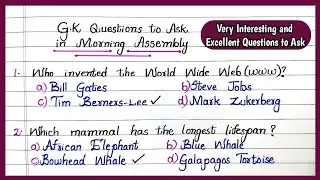 G.K Questions to Ask
in Morning Assembly
Very Interesting and
Excellent Questions to Ask
1. Who invented the World Wide Web (www)?
a) Bill Gaties b) Steve Jobs
c) Tim Berners-Lee ✓ d) Mark Zukerberg
2. Which mammal has the longest lifespan?
a) African Elephant b) Blue Whale
c) Bowhead Whale ✓ d) Galapagos Tortoise